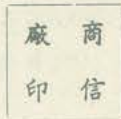 商信
廠印